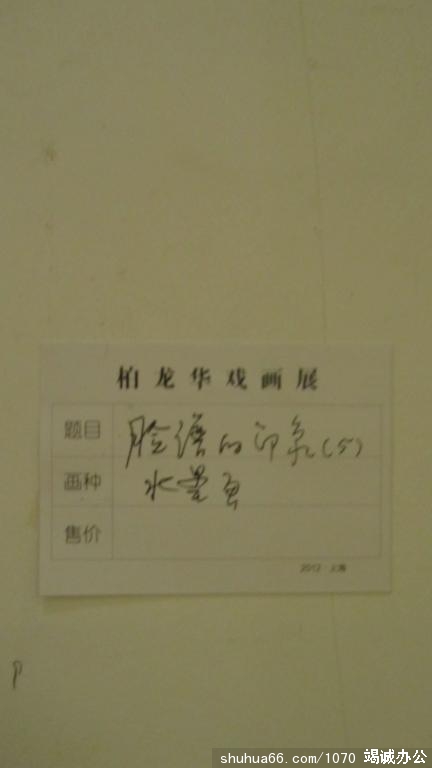 柏龙华戏画展
题目 脸谱的印象(5)
画种 水墨画
售价
2012·上海
P
shuhua66.com/1070 竭诚办公